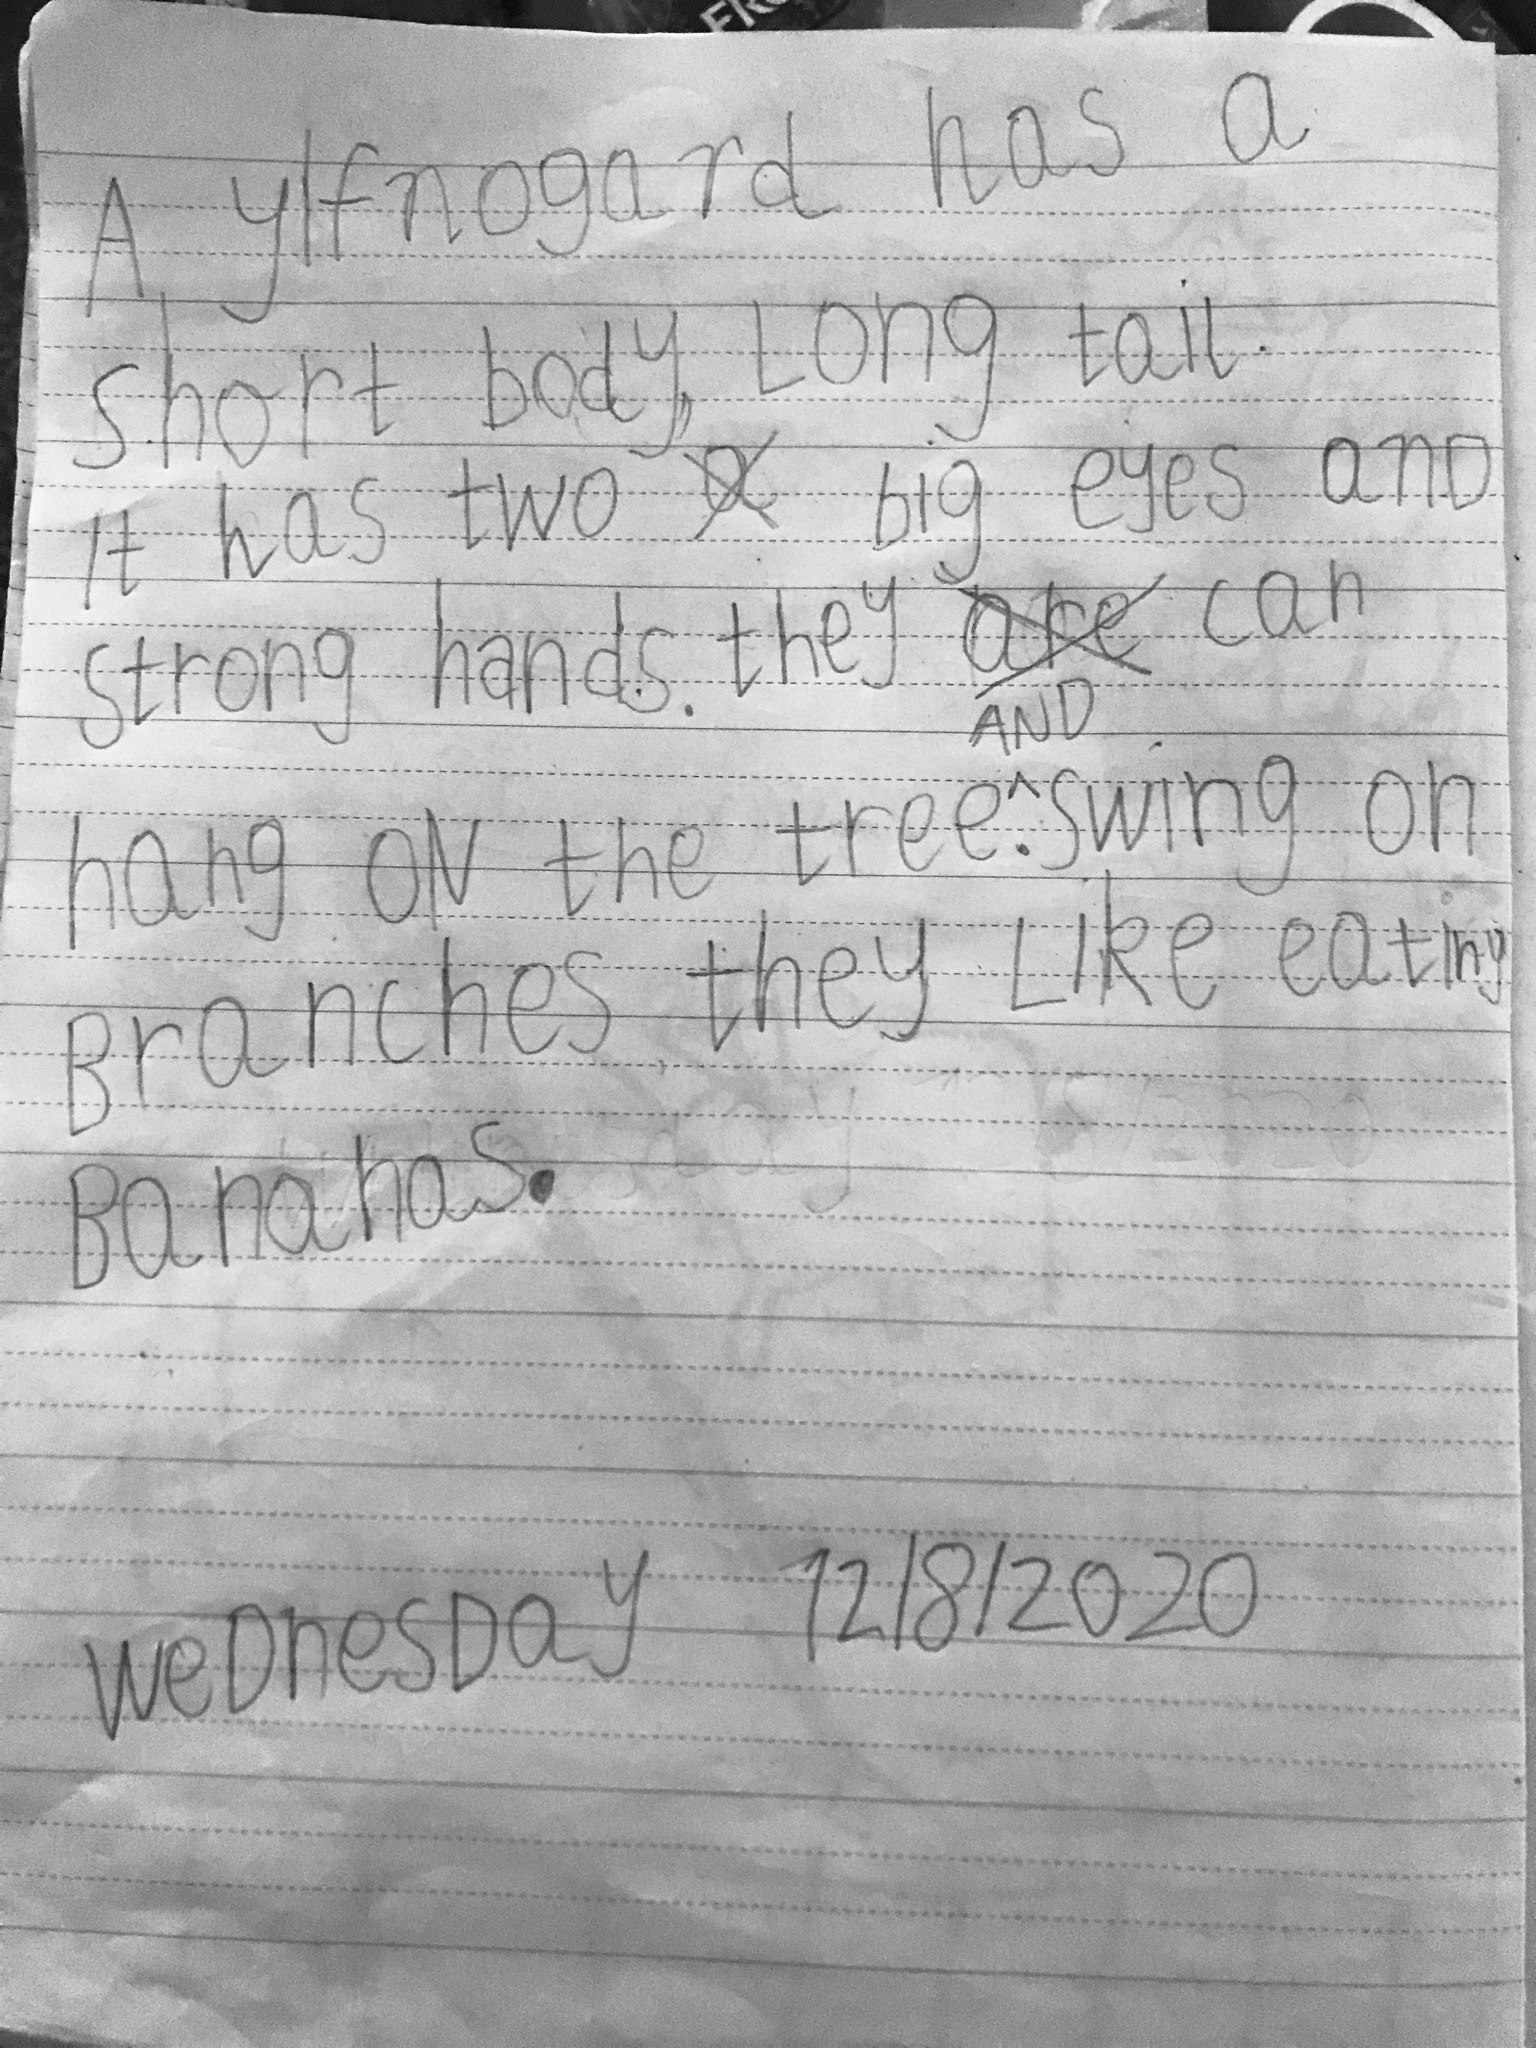 A ylfnogard has a
short body, Long tail.
It has two a big eyes and
strong hands. they are can
AND
hang oN the tree.^swing on
Branches they Like eating
Bananas.
weDnesDay 12/8/2020